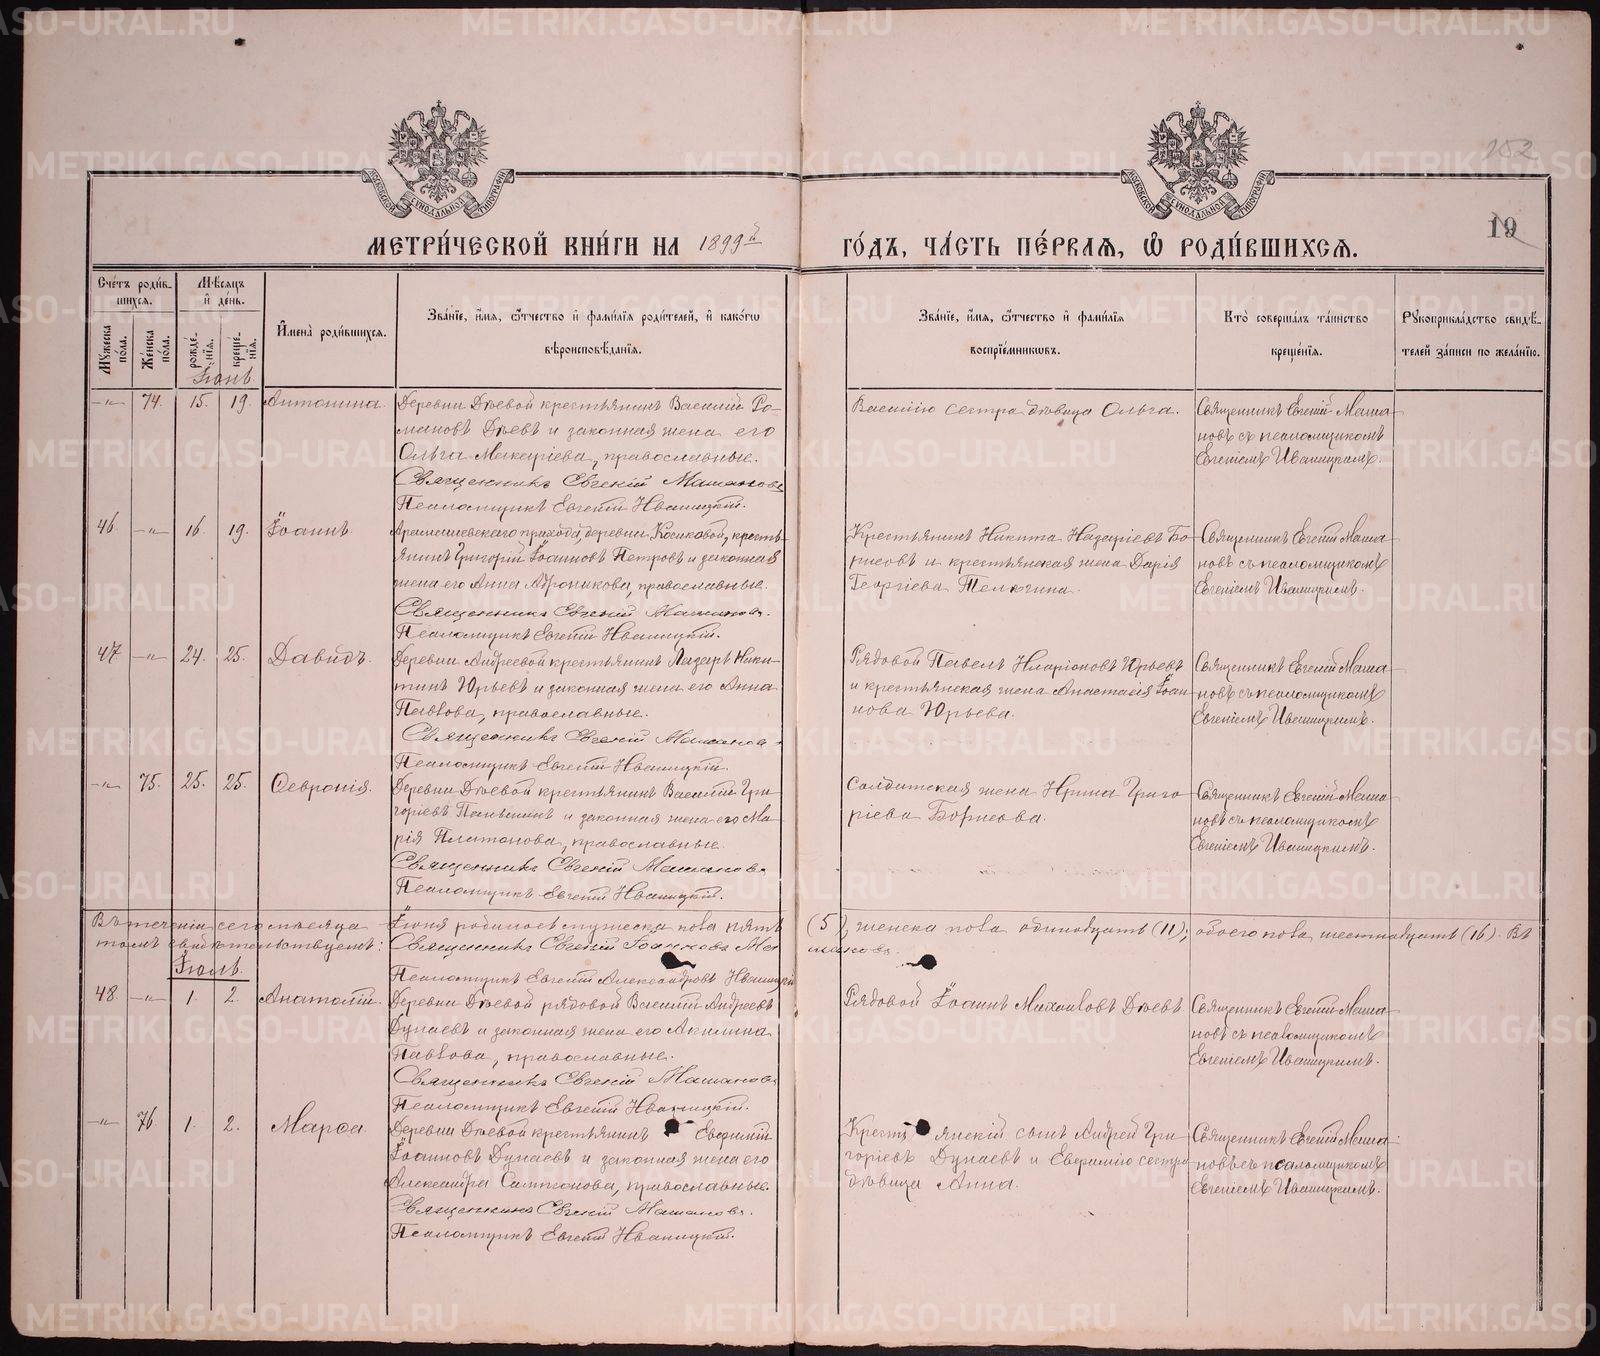 152
19
МЕТРИ́ЧЕСКОЙ КНИ́ГИ НА 1899й
ГО́ДЪ, ЧА́СТЬ ПЕ́РВАЯ, Ѡ РОДИ́ВШИХСЯ.
Сче́тъ роди́в-
шихся.
Мѣ́сяцъ
и́ де́нь.
Му́жеска по́ла.
Же́нска по́ла.
рожде́-
нїя.
креще́-
нїя.
И҆мена̀ роди́вшихся.
Зва́нїе, и҆́мя, ѻ҆́тчество и҆ фами́лїя роди́телей, и҆ како́гѡ
вѣроисповѣ́данїя.
Зва́нїе, и҆́мя, ѻ҆́тчество и҆ фами́лїя
воспрїе́мниковъ.
Кто̀ соверша́лъ та́инство
креще́нїя.
Рукоприкла́дство свидѣ́-
телей за́писи по жела́нїю.
Іюнь.
-"- 74. 15. 19. Антонина.
Деревни Дѣевой крестьянинъ Василий Ро-
мановъ Дѣевъ и законная жена его
Ольга Макаріева, православные.
Священникъ Евгеній Машановъ
Псаломщикъ Евгеній Иваницкій.
Василію сестра дѣвица Ольга.
Священникъ Евгеній Маша-
новъ съ псаломщикомъ
Евгеніемъ Иваницкимъ.
46. -"- 16. 19. Іоаннъ.
Арамашевскаго прихода, деревни Косиковой, кресть-
янинъ Григорій Іоанновъ Петровъ и законная
жена его Анна Афоникова, православные.
Священникъ Евгеній Машановъ.
Псаломщикъ Евгеній Иваницкій.
Крестьянинъ Никита Назаріевъ Бо-
рисовъ и крестьянская жена Дарія
Георгіева Телюгина.
Священникъ Евгеній Маша-
новъ съ псаломщикомъ
Евгеніемъ Иваницкимъ.
47. -"- 24. 25. Давидъ.
Деревни Андреевой крестьянинъ Лазарь Ники-
тинъ Юрьевъ и законная жена его Анна
Павлова, православные.
Священникъ Евгеній Машановъ.
Псаломщикъ Евгеній Иваницкій.
Рядовой Павелъ Иларіоновъ Юрьевъ
и крестьянская жена Анастасія Іоан-
нова Юрьева.
Священникъ Евгеній Маша-
новъ съ псаломщикомъ
Евгеніемъ Иваницкимъ.
-"- 75. 25. 25. Февронія.
Деревни Дѣевой крестьянинъ Василій Гри-
горіевъ Паньшинъ и законная жена его Ма-
рія Платонова, православные.
Священникъ Евгеній Машановъ
Псаломщикъ Евгеній Иваницкій.
Солдатская жена Ирина Григо-
ріева Борисова.
Священникъ Евгеній Маша-
новъ съ псаломщикомъ
Евгеніемъ Иваницкимъ.
Въ теченіи сего мѣсяца Іюня родилось мужеска пола пять (5), женска пола одиннадцать (11); обоего пола шестнадцать (16). Въ
томъ свидѣтельствуемъ: Священникъ Евгеній Іоанновъ Ма-
шановъ.
Псаломщикъ Евгеній Александровъ Иваницкій
Іюль.
48. -"- 1. 2. Анатолій.
Деревни Дѣевой рядовой Василій Андреевъ
Дунаевъ и законная жена его Акилина
Павлова, православные.
Священникъ Евгеній Машановъ
Псаломщикъ Евгеній Иваницкій.
Рядовой Іоаннъ Михаиловъ Дѣевъ
Священникъ Евгеній Маша-
новъ съ псаломщикомъ
Евгеніемъ Иваницкимъ.
-"- 76. 1. 2. Марѳа.
Деревни Дѣевой крестьянинъ Евфимій
Іоанновъ Дунаевъ и законная жена его
Александра Сампсонова, православные.
Священникъ Евгеній Машановъ.
Псаломщикъ Евгеній Иваницкій.
Крестьянскій сынъ Андрей Гри-
горіевъ Дунаевъ и Евфимію сестра
дѣвица Анна.
Священникъ Евгеній Маша-
новъ съ псаломщикомъ
Евгеніемъ Иваницкимъ.
METRIKI.GASO-URAL.RU